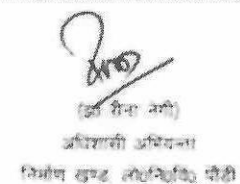 (डा रीना नेगी)
अधिशासी अभियन्ता
निर्माण खण्ड लो०नि०वि० पौडी